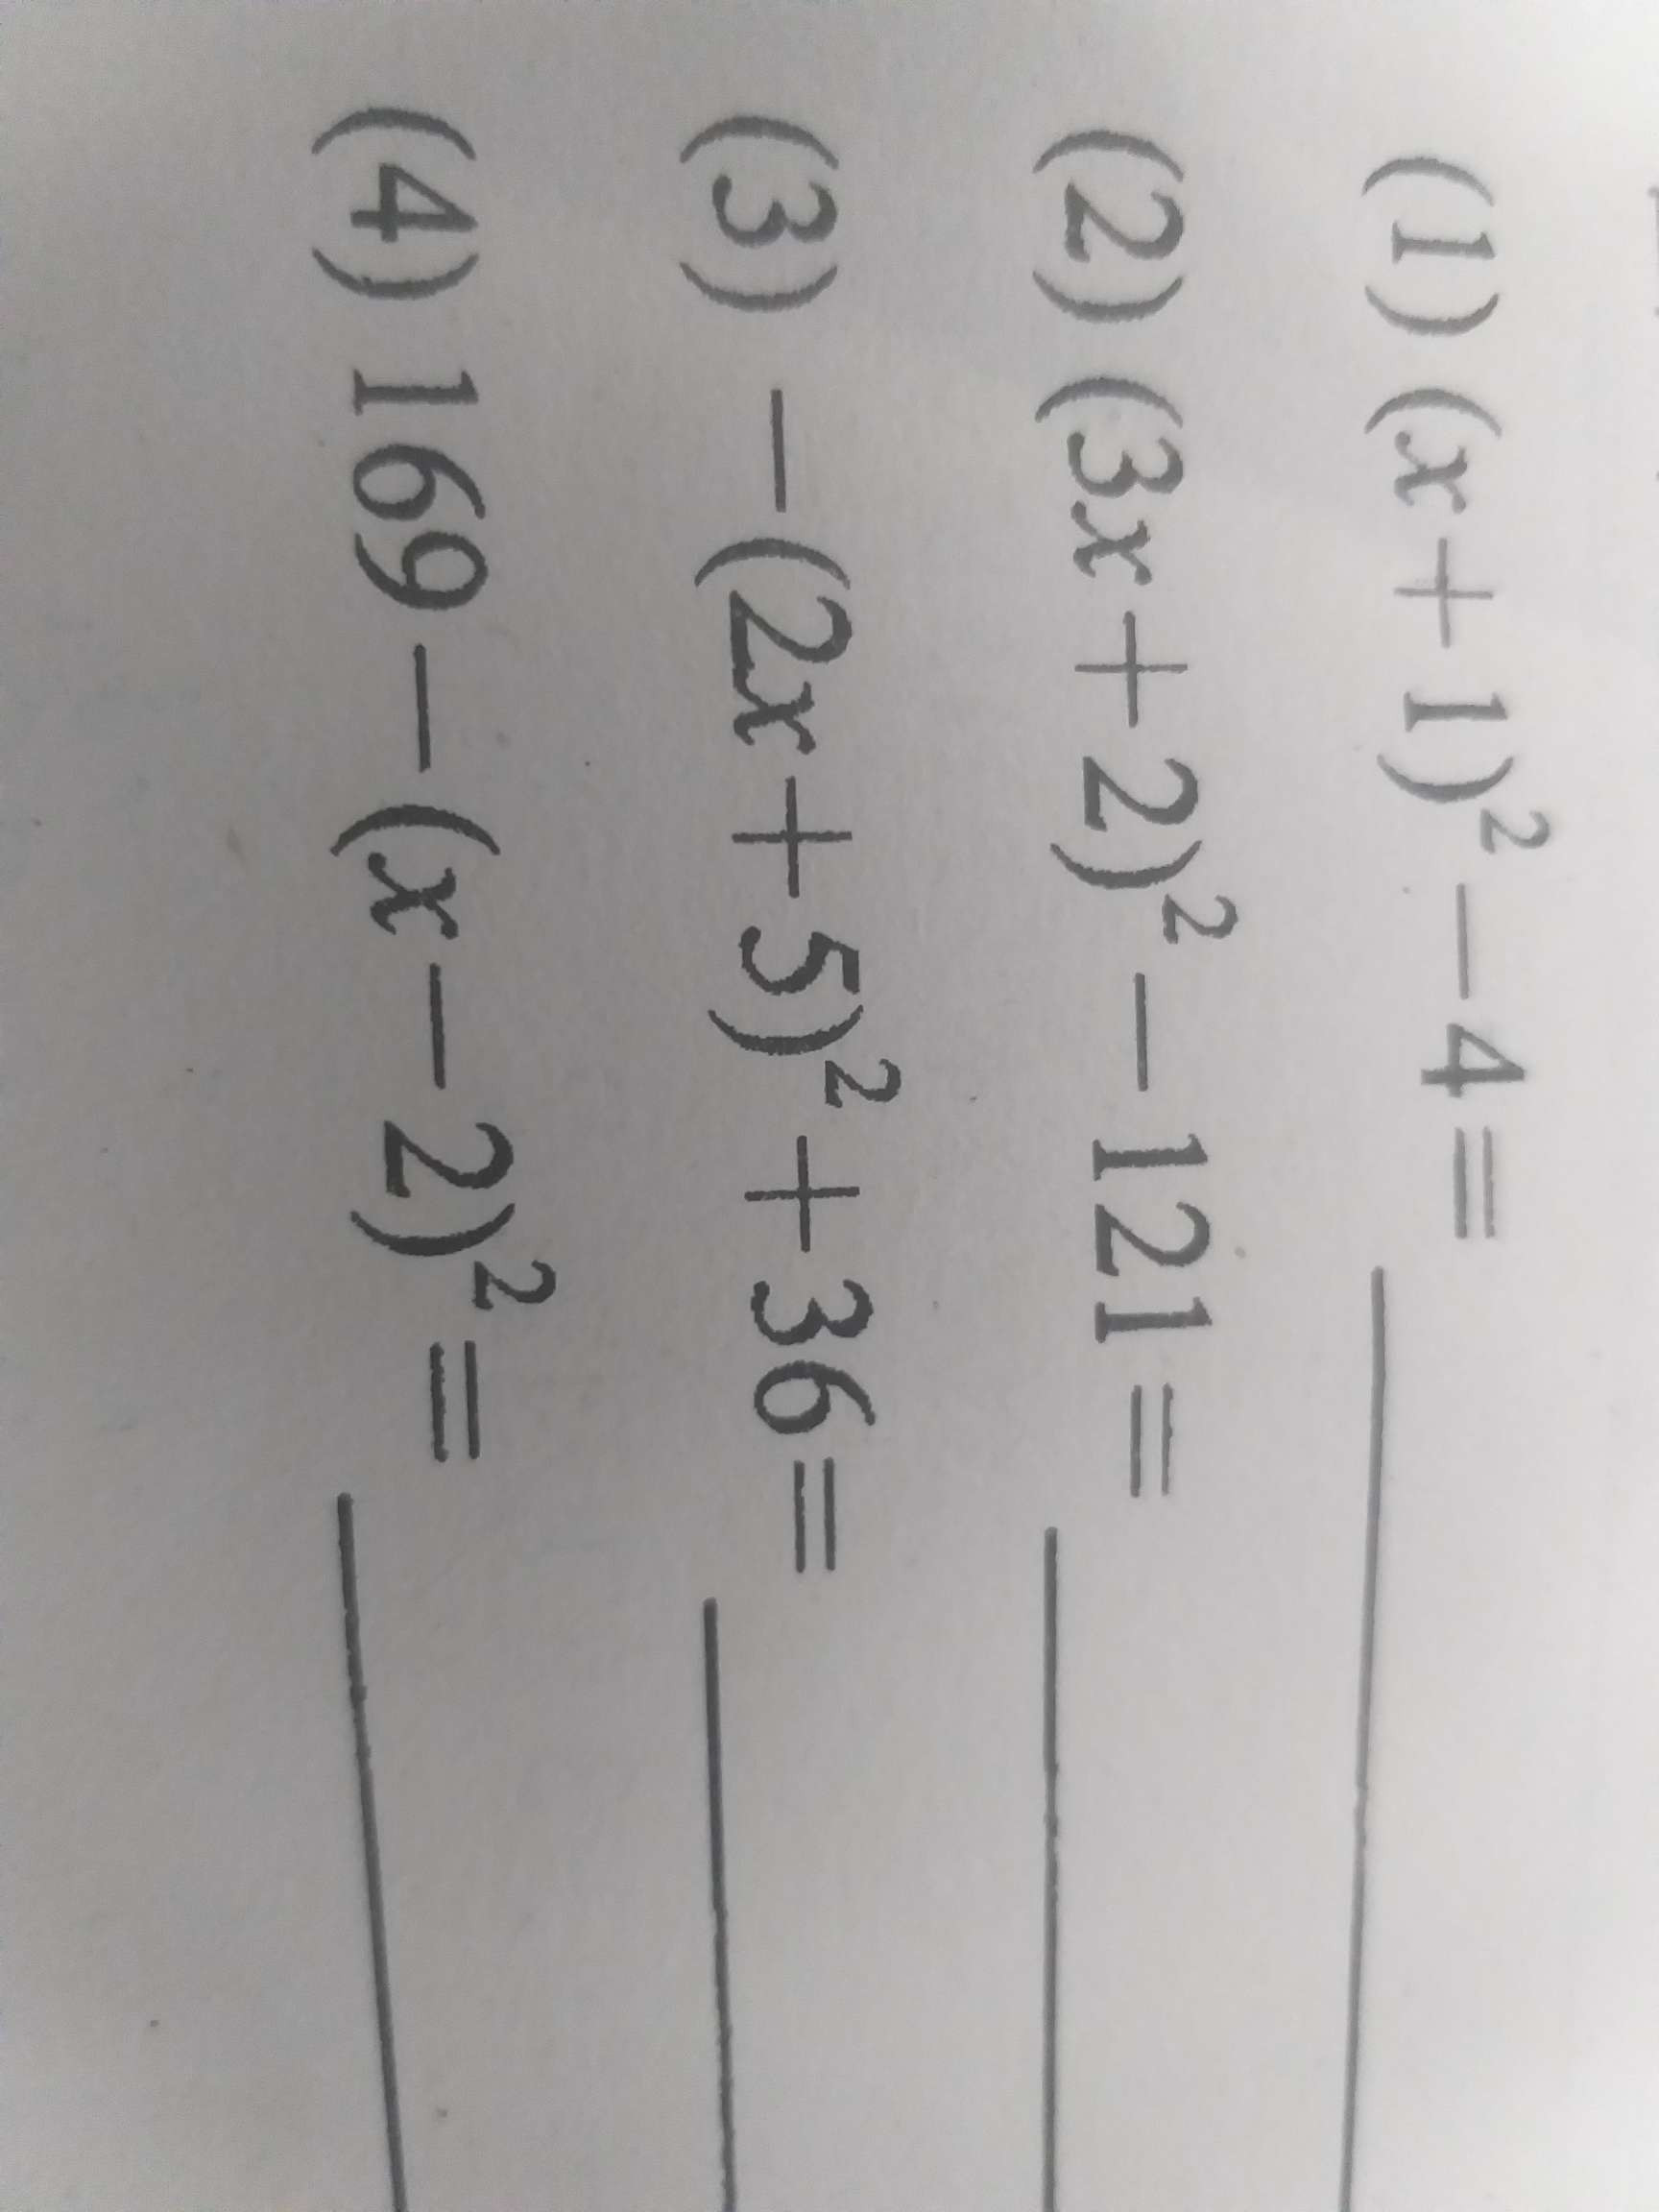 (1) (x+1)²-4=
(2) (3x+2)²-121=
(3) -(2x+5)²+36=
(4) 169-(x-2)²=